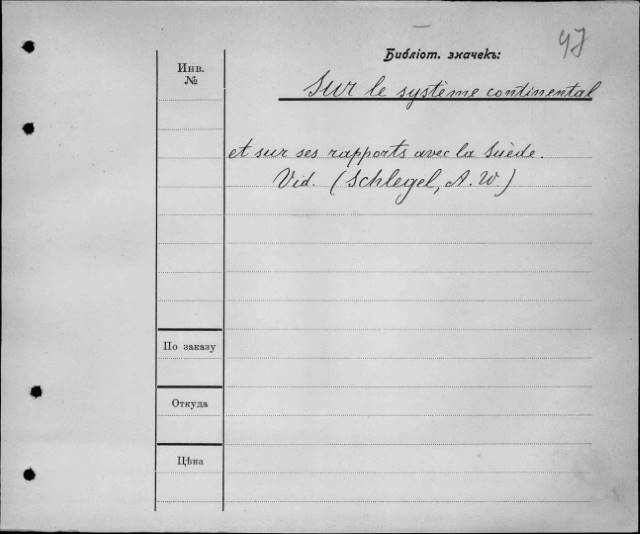 Библіот. значекъ:
Инв.
№
Sur le système continental
et sur ses rapports avec la Suède.
Vid. (Schlegel, A. W.)
По заказу
Откуда
Цѣна